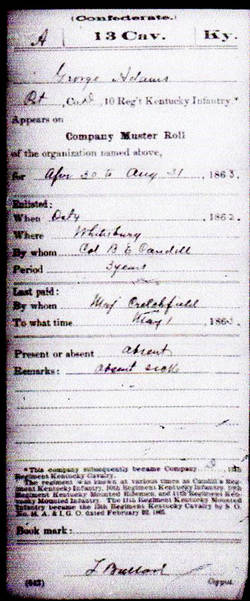 (Confederate.)
A 13 Cav. Ky.
George Adams
Pvt, Co. D, 10 Reg't Kentucky Infantry.*
Appears on
Company Muster Roll
of the organization named above,
for Apr 30 to Aug 31, 1863.
Enlisted:
When Oct 4, 1862.
Where Whitesburg
By whom Col B E Caudill
Period 3 years
Last paid:
By whom Maj Crutchfield
To what time May 1, 186
Present or absent absent
Remarks: absent sick
*This company subsequently became Company D, 13th
Regiment Kentucky Cavalry.
The regiment was known at various times as Caudill's Reg-
iment Kentucky Infantry, 10th Regiment Kentucky Infantry,
Regiment Kentucky Mounted Riflemen, and 11th Regiment Ken-
tucky Mounted Infantry. The 11th Regiment Kentucky Mounted
Infantry became the 13th Regiment Kentucky Cavalry by S. O.
No. , A. & I. G. O. dated February 28, 1865.
Book mark:
(642) Copyist.